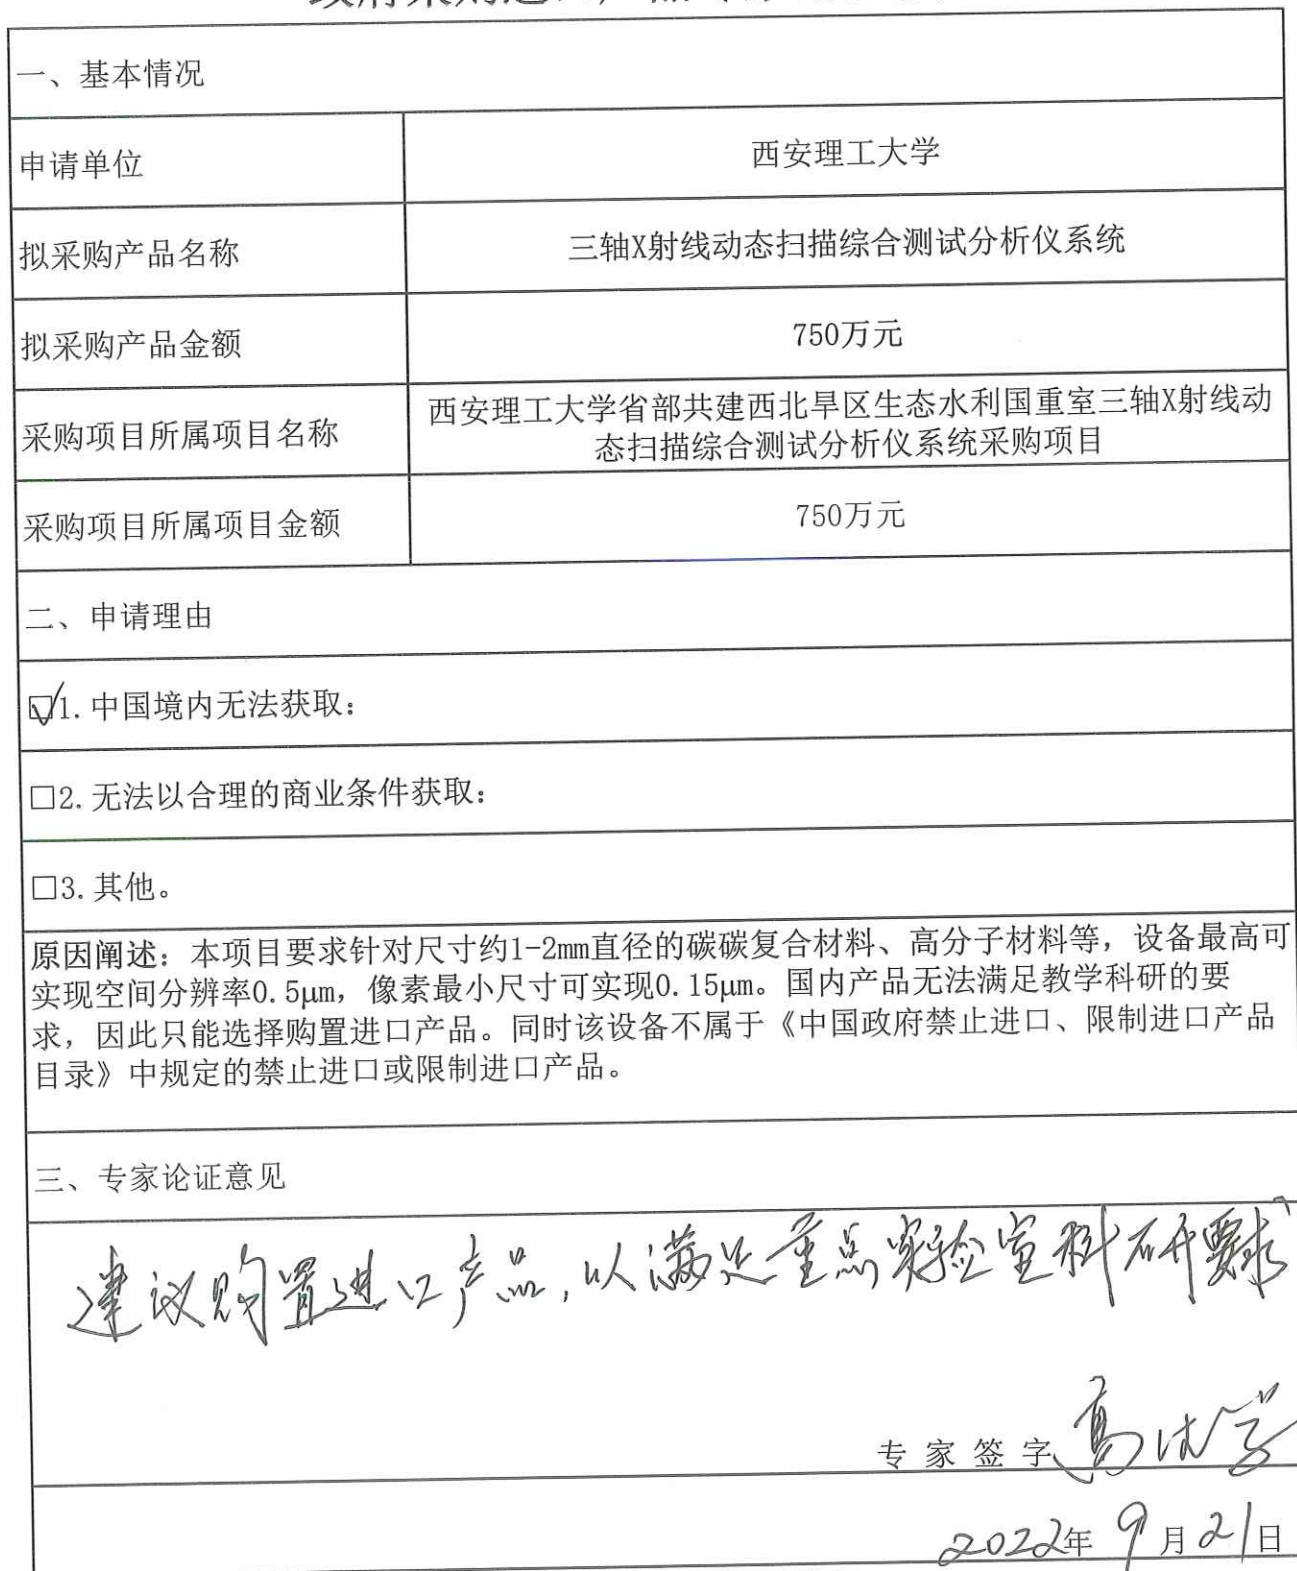 一、基本情况
申请单位
西安理工大学
拟采购产品名称
三轴X射线动态扫描综合测试分析仪系统
拟采购产品金额
750万元
采购项目所属项目名称
西安理工大学省部共建西北旱区生态水利国重室三轴X射线动
态扫描综合测试分析仪系统采购项目
采购项目所属项目金额
750万元
二、申请理由
☑1.中国境内无法获取：
□2.无法以合理的商业条件获取：
□3.其他。
原因阐述：本项目要求针对尺寸约1-2mm直径的碳碳复合材料、高分子材料等，设备最高可
实现空间分辨率0.5μm，像素最小尺寸可实现0.15μm。国内产品无法满足教学科研的要
求，因此只能选择购置进口产品。同时该设备不属于《中国政府禁止进口、限制进口产品
目录》中规定的禁止进口或限制进口产品。
三、专家论证意见
建议购置进口产品，以满足重点实验室科研要求
专家签字 高
2022年9月21日